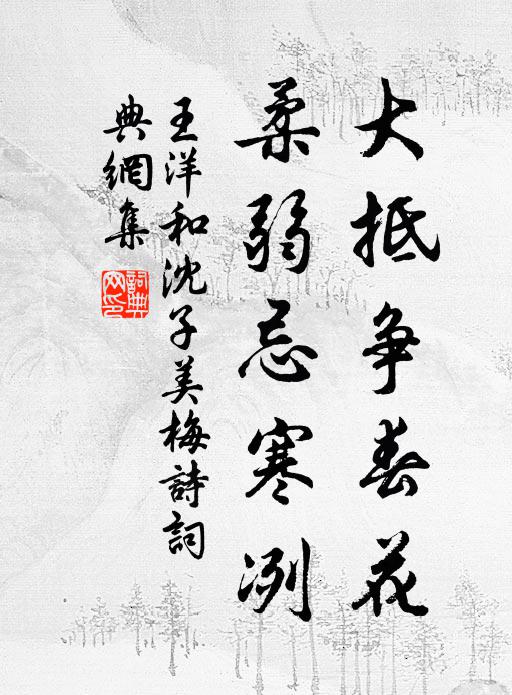 大抵争春花
柔弱忌寒冽
王洋和沈子美梅詩詞
典網集
詞典
网印